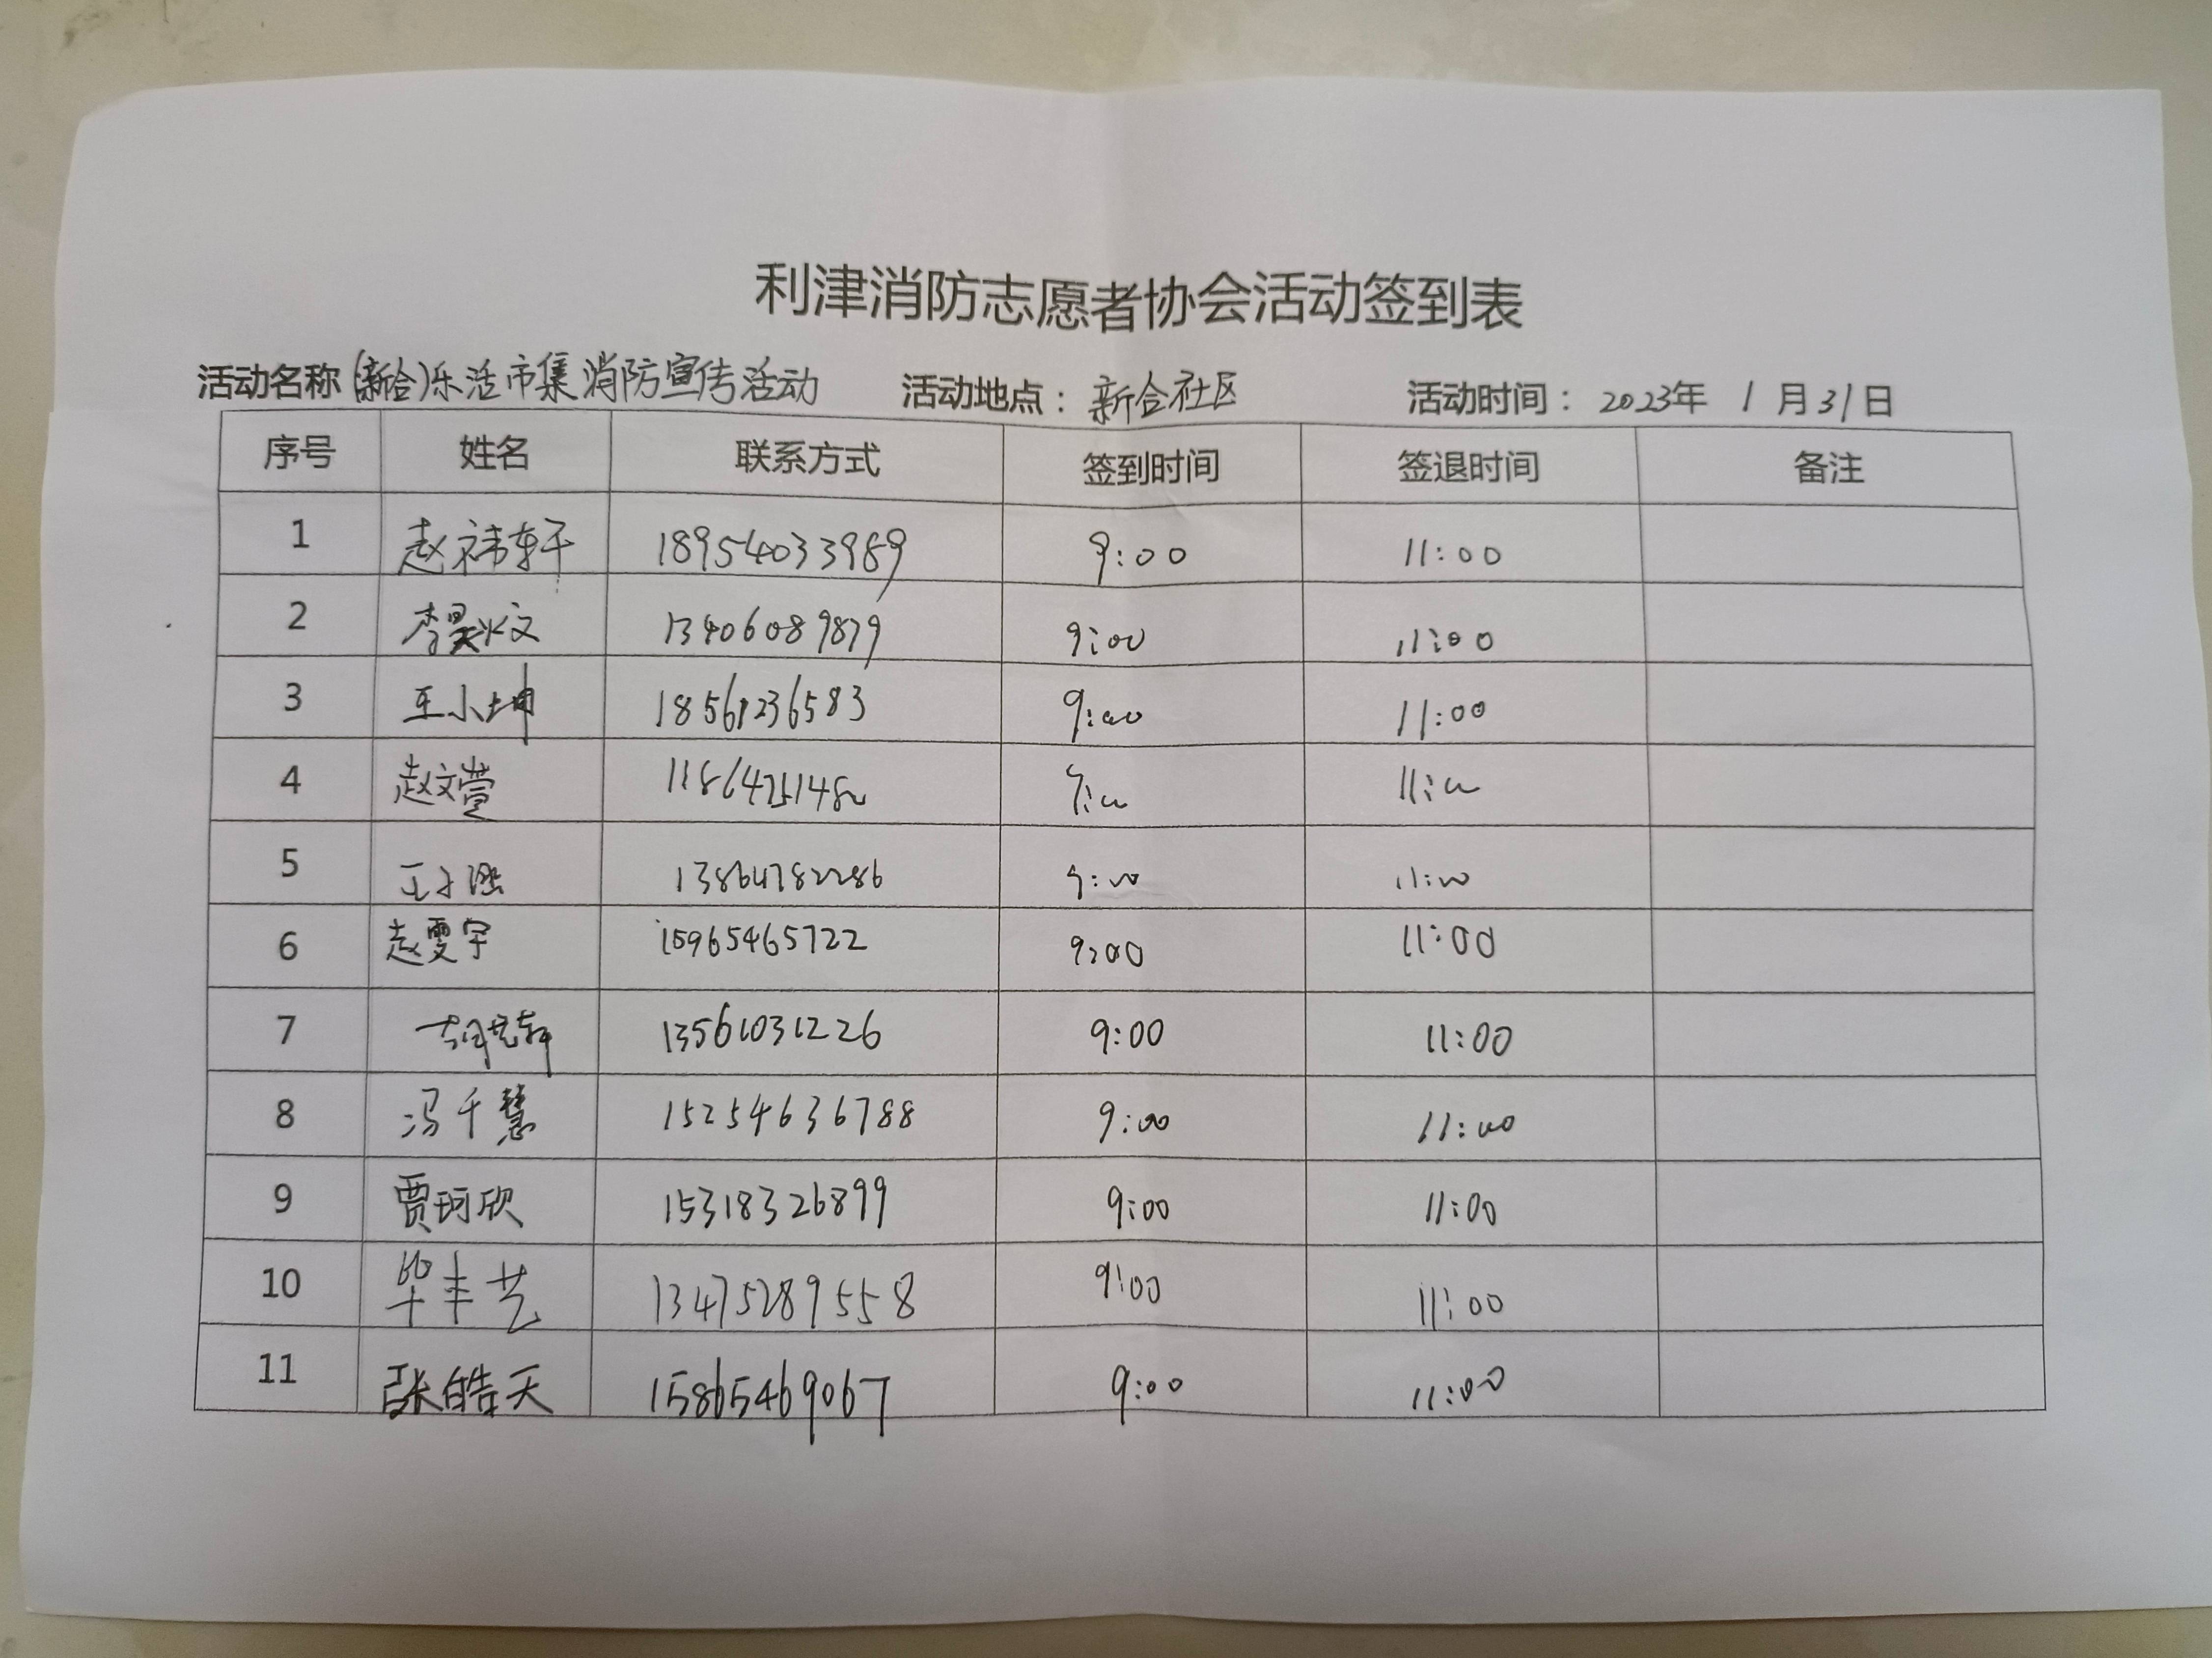 利津消防志愿者协会活动签到表
活动名称(新合)乐活市集消防宣传活动 活动地点：新合社区 活动时间：2023年 1月31日
序号 姓名 联系方式 签到时间 签退时间 备注
1 赵祎轩 18954033989 9:00 11:00
2 李昊文 13406089879 9:00 11:00
3 王小坤 18561236583 9:00 11:00
4 赵文萱 9:00 11:00
5 王子涵 13864782286 9:00 11:00
6 赵雯宇 15965465722 9:00 11:00
7 13561031226 9:00 11:00
8 冯千慧 15254636788 9:00 11:00
9 贾珂欣 15318326899 9:00 11:00
10 毕丰艺 13475289558 9:00 11:00
11 张皓天 15865469067 9:00 11:00